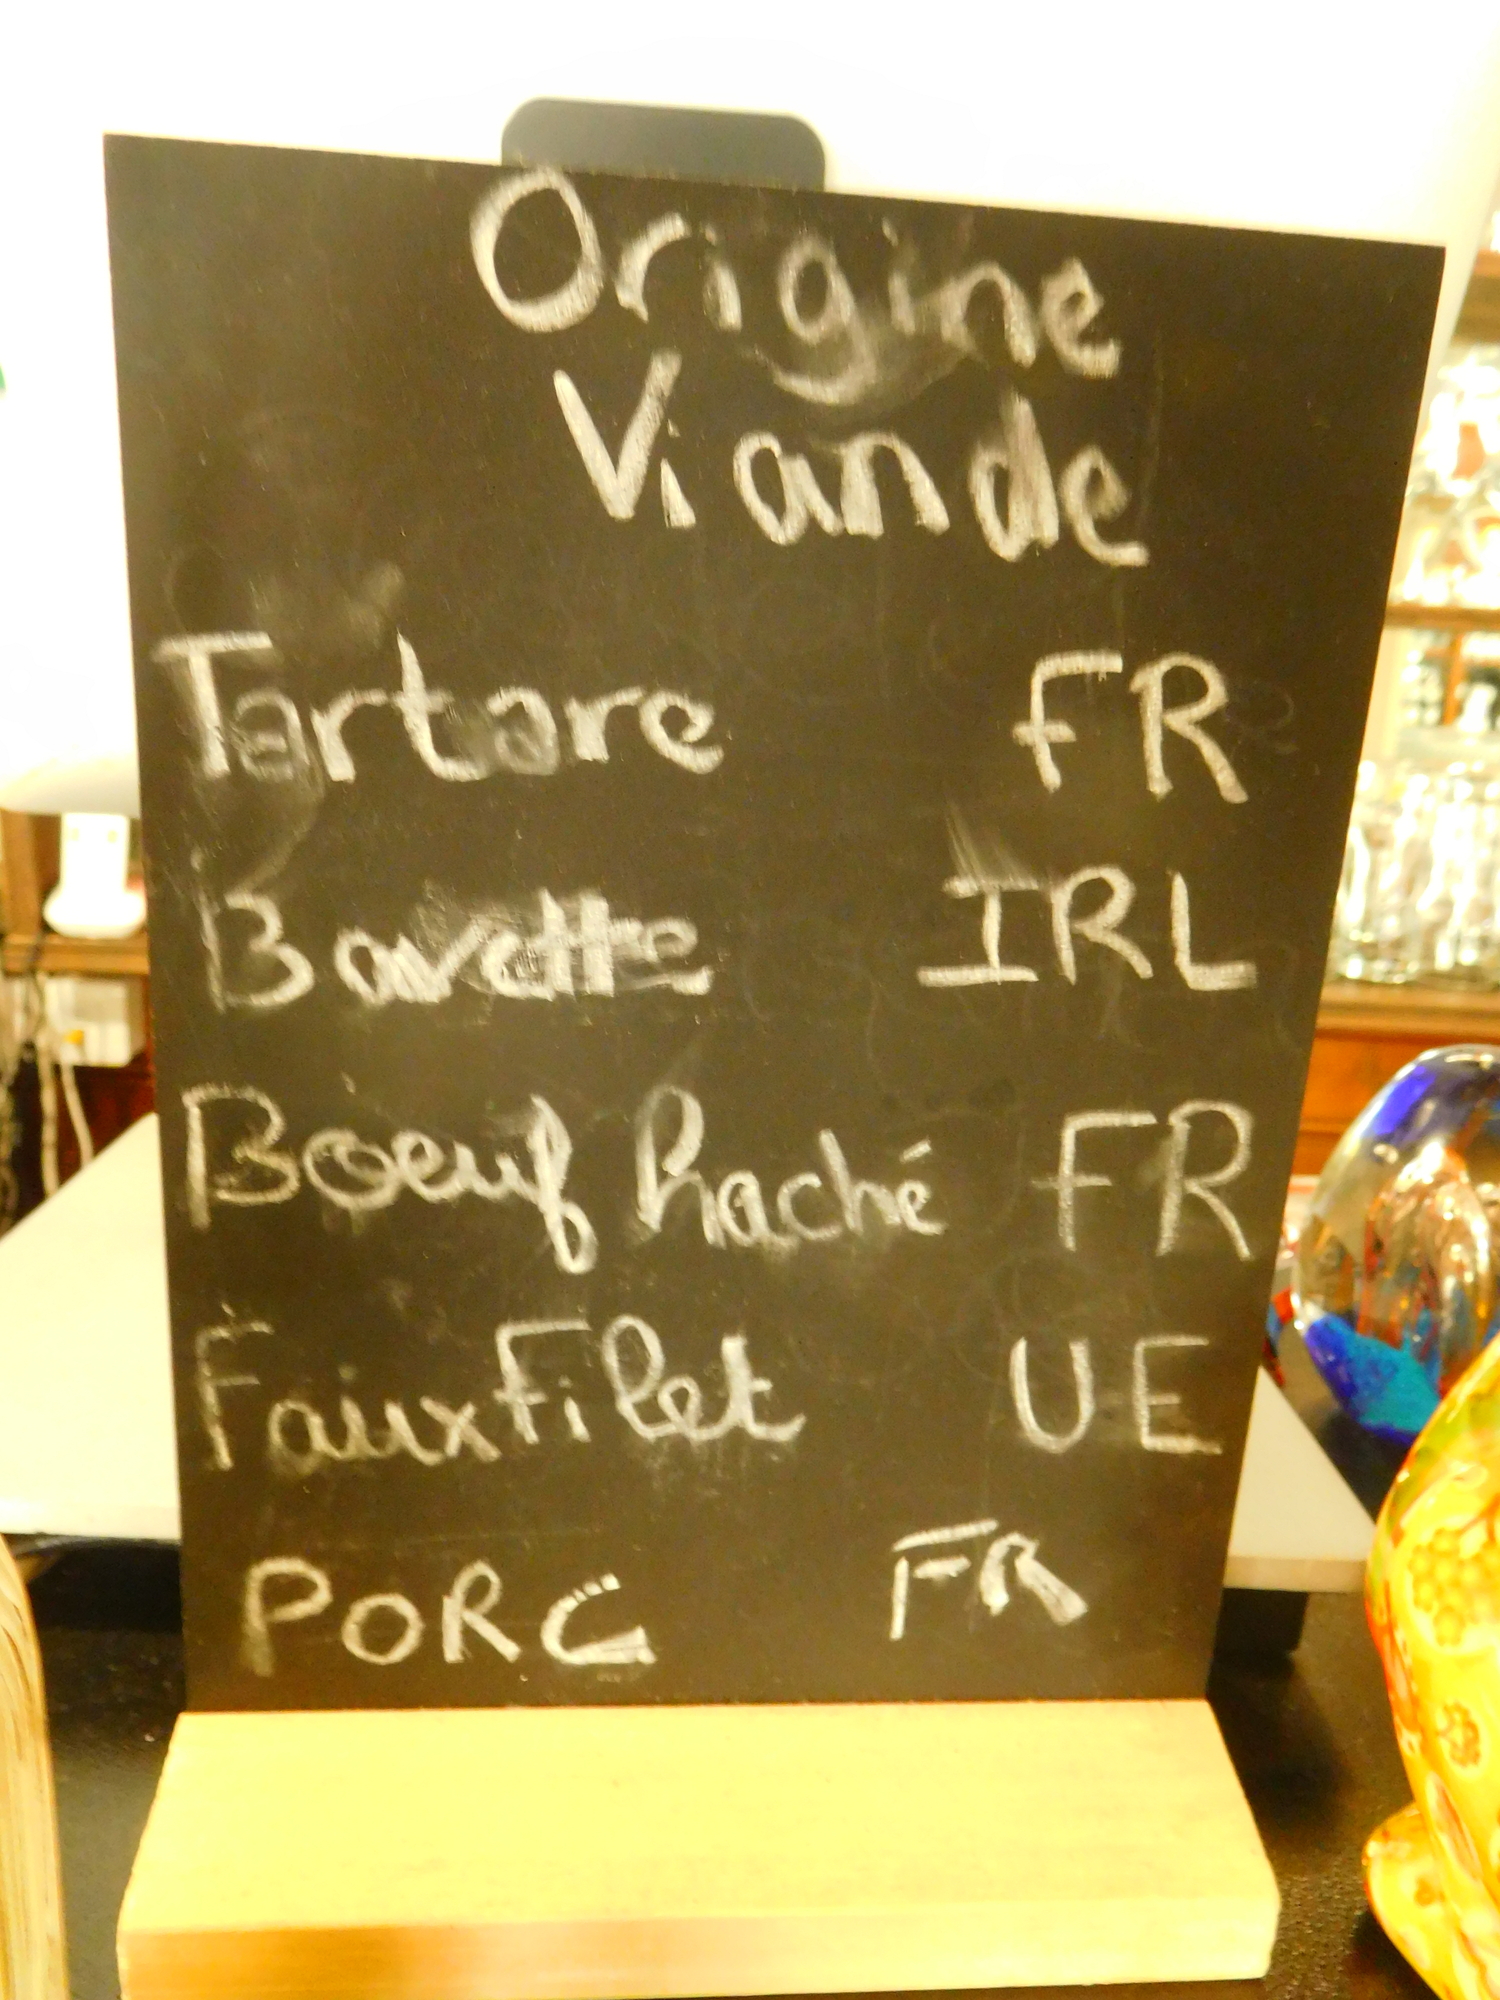 Origine
Viande
Tartare FR
Bavette IRL
Boeuf haché FR
Faux Filet UE
PORC FR